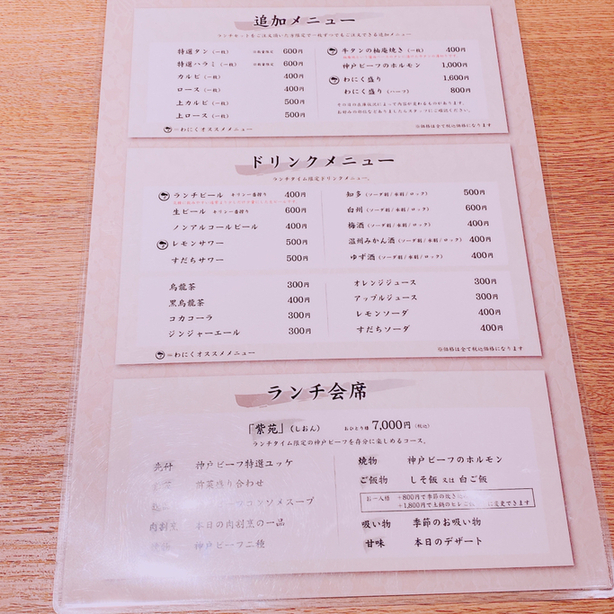 追加メニュー
特選タン（一枚） 600円
特選ハラミ（一枚） 600円
カルビ（一枚） 400円
ロース（一枚） 400円
上カルビ（一枚） 500円
上ロース（一枚） 500円
=わにくオススメメニュー
牛タンの柚庵焼き（一枚） 400円
神戸ビーフのホルモン 1,000円
わにく盛り（一枚） 1,600円
わにく盛り（ハーフ） 800円
※価格は全て税込価格になります
ドリンクメニュー
ランチタイム限定ドリンクメニュー。
ランチビール キリン一番搾り 400円
生ビール キリン一番搾り 600円
ノンアルコールビール 400円
レモンサワー 500円
すだちサワー 500円
知多（ソーダ割/水割/ロック） 500円
白州（ソーダ割/水割/ロック） 600円
梅酒（ソーダ割/水割/ロック） 400円
温州みかん酒（ソーダ割/水割/ロック） 400円
ゆず酒（ソーダ割/水割/ロック） 400円
烏龍茶 300円
黒烏龍茶 400円
コカコーラ 300円
ジンジャーエール 300円
オレンジジュース 300円
アップルジュース 300円
レモンソーダ 400円
すだちソーダ 400円
=わにくオススメメニュー
※価格は全て税込価格になります
ランチ会席
「紫苑」（しおん） おひとり様 7,000円（税込）
ランチタイム限定の神戸ビーフを存分に楽しめるコース。
先付 神戸ビーフ特選ユッケ
前菜盛り合わせ
コンソメスープ
肉割烹 本日の肉割烹の一品
神戸ビーフ二種
焼物 神戸ビーフのホルモン
ご飯物 しそ飯 又は 白ご飯
お一人様 +800円で季節の炊き
+1,800円で土鍋の に変更できます
吸い物 季節のお吸い物
甘味 本日のデザート